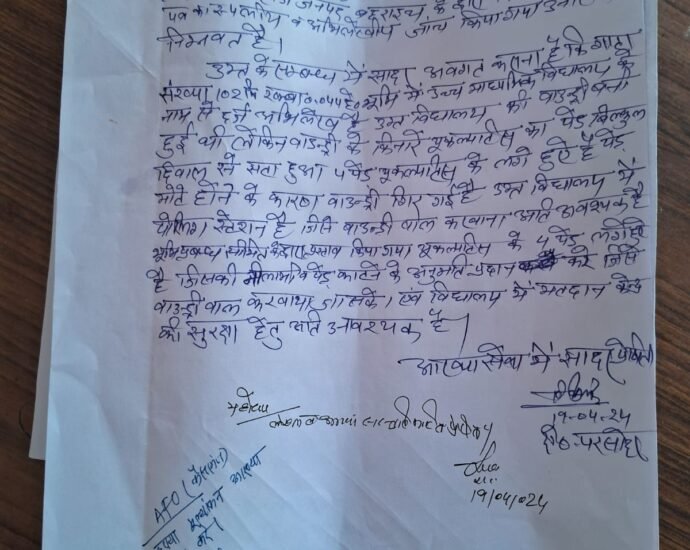 पत्र का स्थलीय व अभिलेखीय जांच किया गया
निम्नवत है।
उक्त के सम्बन्ध में सादर अवगत कराना है कि गाटा
संख्या 102 मि रकबा 0.044 हे० भूमि में उच्च माध्यमिक विद्यालय के
नाम से दर्ज अभिलेख है उक्त विद्यालय की बाउन्ड्री बनी
हुई थी लेकिन बाउन्ड्री के किनारे यूकल्पटिस का पेड़ बिल्कुल
दिवाल से सटा हुआ 4 पेड़ यूकल्पटिस के लगे हुऐ हैं पेड़
मोटे होने के कारण बाउन्ड्री गिर गई है उक्त विद्यालय में
पोलिंग स्टेशन है जिसे बाउन्ड्री वाल करवाना अति आवश्यक है
भूमि प्रबन्धक समिति के द्वारा प्रस्ताव किया गया यूकल्पटिस के 4 पेड़ लगे है
है जिसकी पेड़ काटने के अनुमति प्रदान करे जिसे
बाउन्ड्री वाल करवाया जा सकें। एवं विद्यालय में मतदान केन्द्र
की सुरक्षा हेतु अति आवश्यक है।
आख्या सेवा में सादर प्रेषित
19-04-24
महोदय
19/04/024
AFO
आख्या
करें।